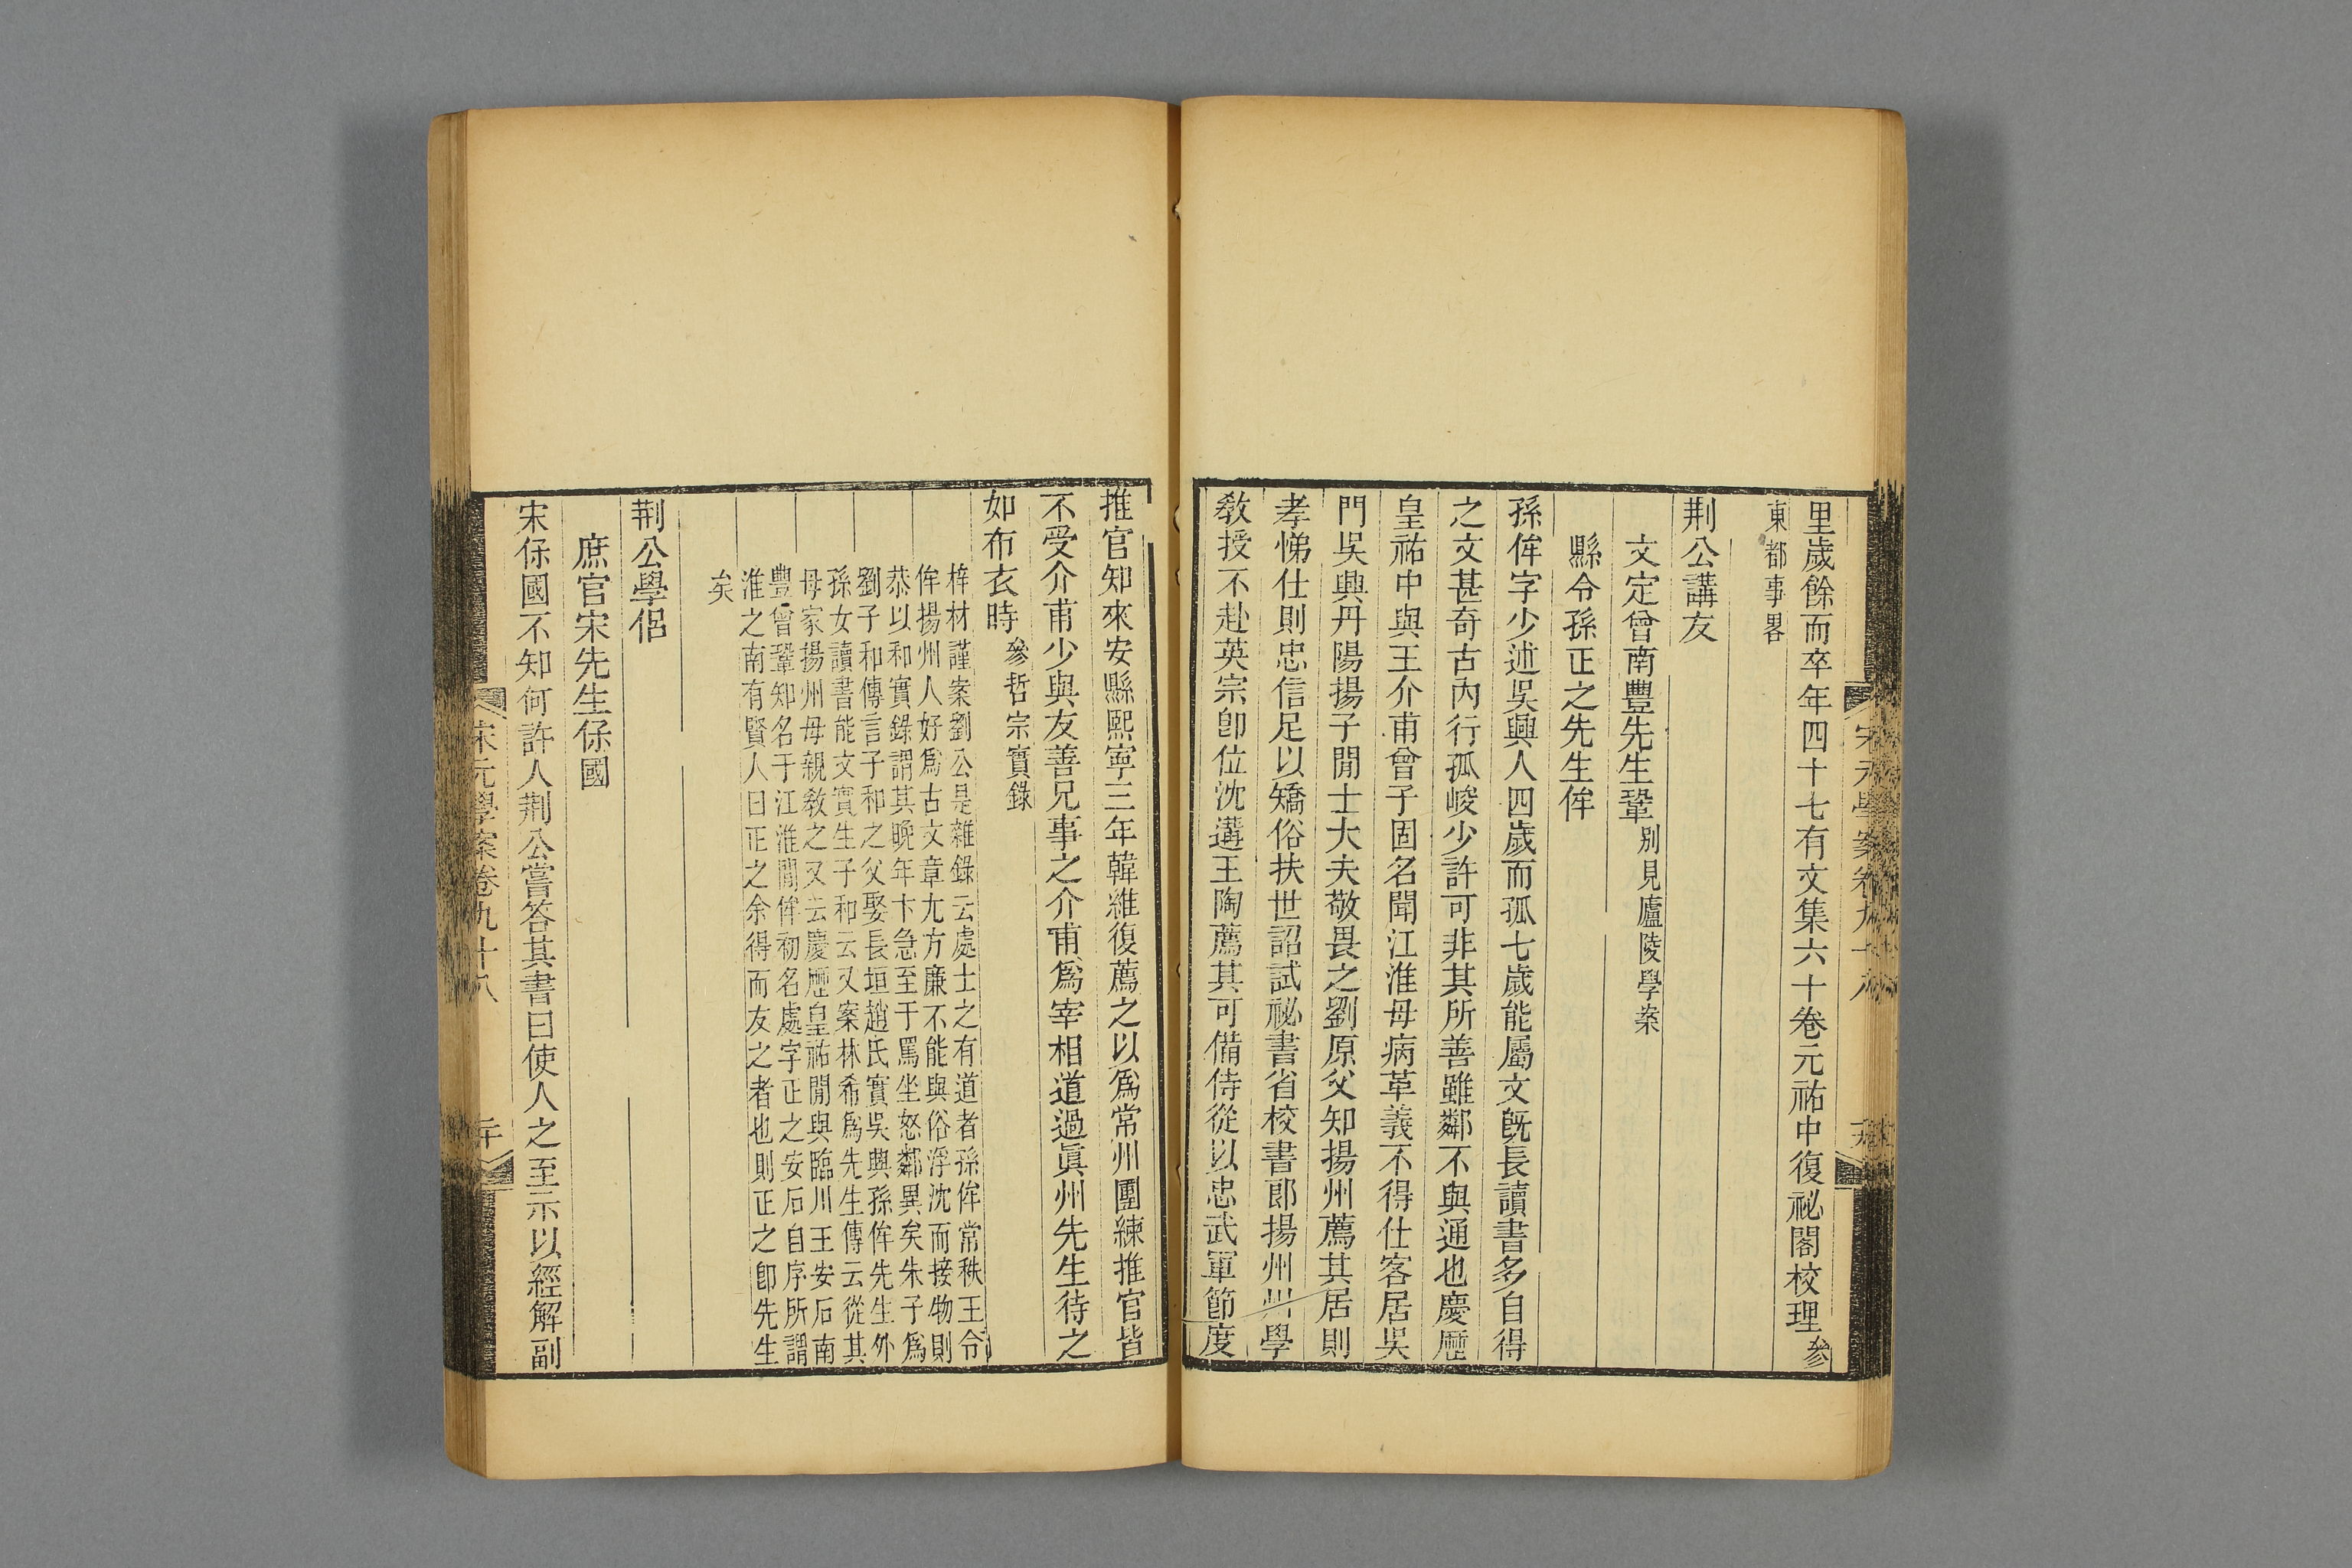 里歲餘而卒年四十七有文集六十卷元祐中復祕閣校理參
東都事畧
荆公講友
文定曾南豐先生鞏別見廬陵學案
縣令孫正之先生侔
孫侔字少述吳興人四歲而孤七歲能屬文旣長讀書多自得
之文甚奇古內行孤峻少許可非其所善雖鄰不與通也慶歷
皇祐中與王介甫曾子固名聞江淮母病革義不得仕客居吳
門吳興丹陽揚子閒士大夫敬畏之劉原父知揚州薦其居則
孝悌仕則忠信足以矯俗扶世詔試祕書省校書郞揚州州學
敎授不赴英宗卽位沈遘王陶薦其可備侍從以忠武軍節度
推官知來安縣熙寧三年韓維復薦之以爲常州團練推官皆
不受介甫少與友善兄事之介甫爲宰相道過眞州先生待之
如布衣時參哲宗實錄
梓材謹案劉公是雜錄云處士之有道者孫侔常秩王令
侔揚州人好爲古文章尢方廉不能與俗浮沈而接物則
恭以和實錄謂其晚年卞急至于罵坐怒鄰異矣朱子爲
劉子和傳言子和之父娶長垣趙氏實吳興孫侔先生外
孫女讀書能文實生子和云又案林希爲先生傳云從其
母家揚州母親敎之又云慶歷皇祐閒與臨川王安石南
豐曾鞏知名于江淮閒侔初名處字正之安石自序所謂
淮之南有賢人曰正之余得而友之者也則正之卽先生
矣
荆公學侶
庶官宋先生保國
宋保國不知何許人荆公嘗答其書曰使人之至示以經解副
宋元學案卷九十八